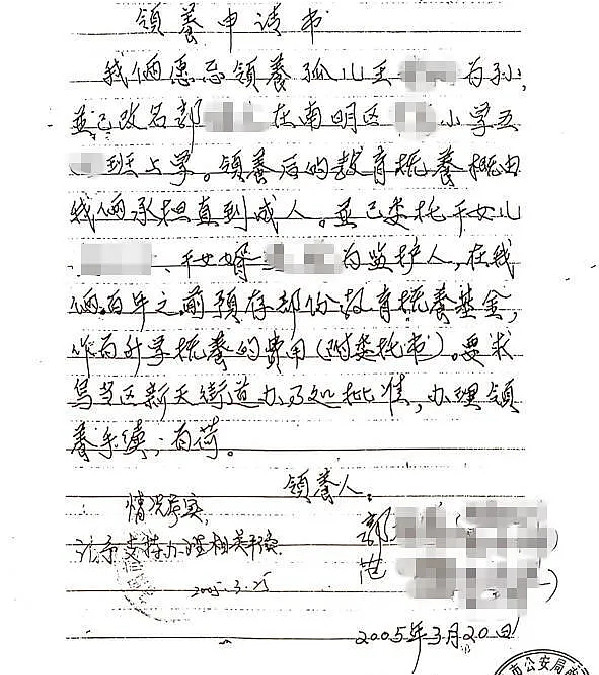 领养申请书
我俩愿意领养孤儿王 为孙,
并已改名郭 在南明区 小学五
班上学。领养后的教育抚养概由
我俩承担直到成人。并已委托干女儿
、干女婿 为监护人,在我
俩百年之前预存部份教育抚养基金,
作为升学抚养的费用(附委托书)。要求
乌当区新天街道办予批准,办理领
养手续,为荷。
领养人:
情况属实,
郭
请予支持办理相关手续
范
2005.3.25
2005年3月20日
市公安局